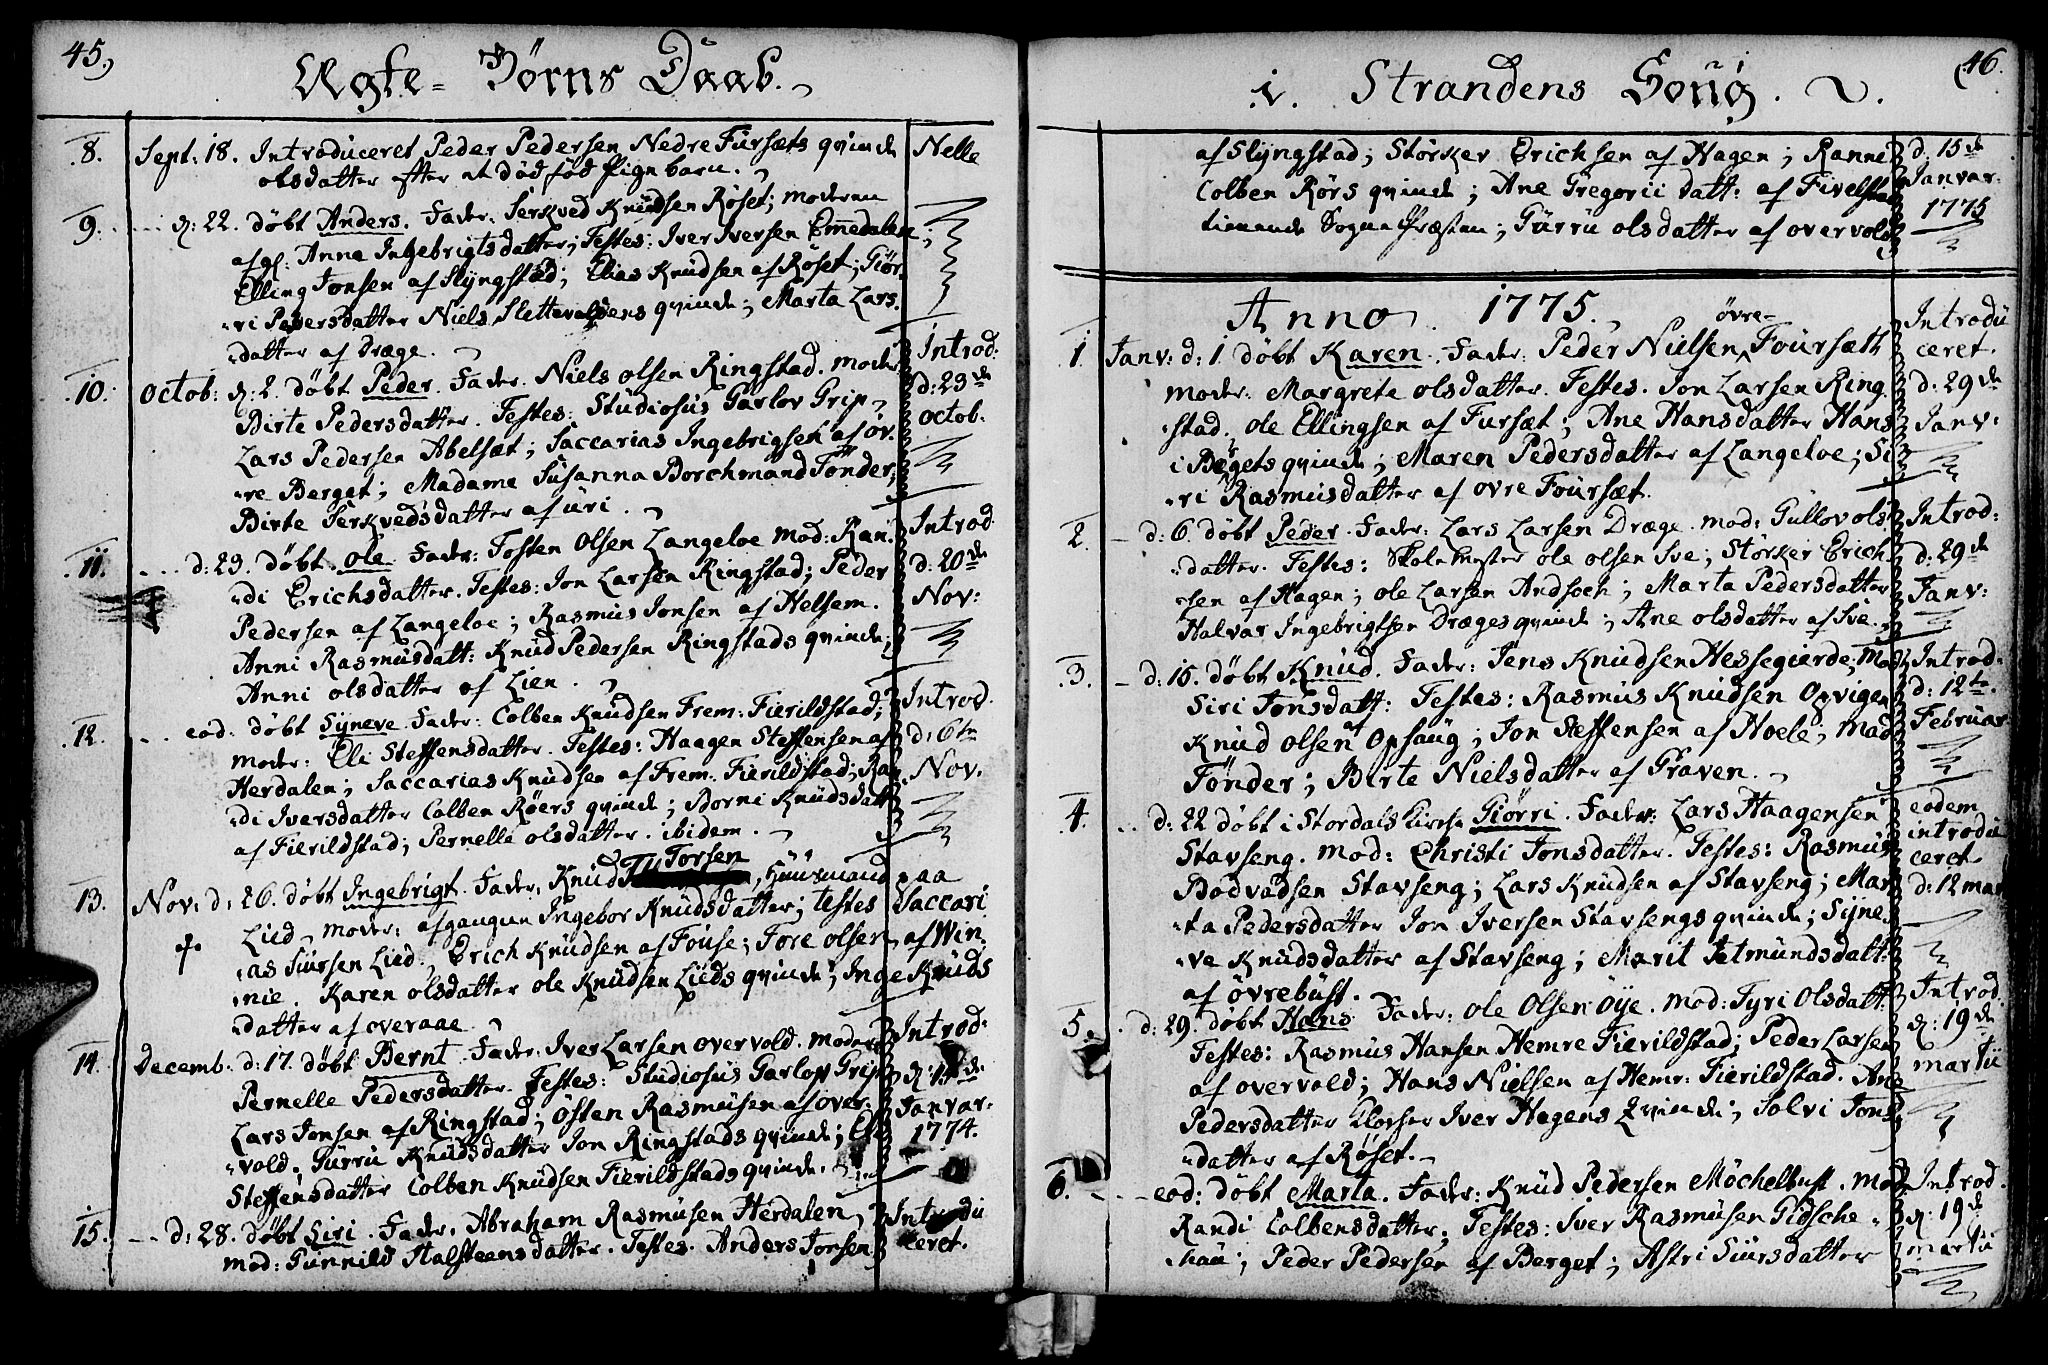 45.
Ægte-Börns Daab.
8. Sept: 18. Introduceret Peder Pedersen Nedre Fursæts qvinde Nelle
olsdatter efter et dödföd Pigebarn.
9. d: 22. döbt Anders. Fader: Serkved Knudsen Röset; moderen
afg: Anne Ingebrigtsdatter; Testes: Iver Iversen Emedalen;
Elling Jonsen af Slyngstad; Elias Knudsen af Röset; Giör
ri Pedersdatter Niels Slettevoldens qvinde; Marta Lars
datter af Dræge.
10. Octob: d: 2. döbt Peder. Fader. Niels olsen Ringstad. moder
Birte Pedersdatter. Testes: Studiosus Garlov Grip
Lars Pedersen Abelsæt; Saccarias Ingebrigtsen af öv.
re Berget; Madame Susanna Borchmand Tönder;
Birte Serkvedsdatter af uri.
Introd:
d: 23de
Octob:
11. d: 23. döbt ole. Fader: Tosten Olsen Langeloe mod: Ran
di Erichsdatter. Testes: Jon Larsen Ringstad; Peder
Pedersen af Langeloe; Rasmus Jonsen af Helsem.
Anni Rasmusdatt: Knud Pedersen Ringstads qvinde;
Anni olsdatter af Lien.
Introd
d: 20de
Nov:
12. eod: döbt Syneve. Fader: Colben Knudsen Frem: Fierildstad;
moder: Eli Steffensdatter. Testes: Haagen Steffensen af
Herdalen; Saccarias Knudsen af Frem. Fierildstad; Ran
di Iversdatter Colben Röers qvinde; Borni Knudsdatt
af Fierildstad; Pernelle olsdatter. ibidem.
Introd.
d: 6te
Nov:
13. Nov: d: 26. döbt Ingebrigt. Fader, Knud Torsen, Huusmand paa
Lied moder: afgangne Ingebor Knudsdatter; testes Saccari
as Siursen Lied, Erich Knudsen af Fouse; Tore olsen af Win
nie. Karen olsdatter ole Knudsen Lieds qvinde; Inge Knuds
datter af overaae.
14. Decemb. d: 17. döbt Bernt. Fader: Iver Larsen overvold. moder
Pernelle Pedersdatter. Testes: Studiosus Garlov Grip
Lars Jonsen af Ringstad; östen Rasmusen af over
vold. Gurru Knudsdatter Jon Ringstads qvinde; Eli
Steffensdatter Colben Knudsen Fierildstads qvinde.
Introd:
Janvar.
1774.
15. d: 28. döbt Siri. Fader, Abraham Rasmusen Herdalen,
mod: Gunnild Halsteensdatter. Testes. Anders Jonsen
Introdu
ceret.
46.
i. Strandens Sougn.
af Slyngstad; Störker Erichsen af Hagen; Ranne
Colben Rörs qvinde; Ane Gregorii datt: af Fivelstad
tienende Sogne Præsten; Gurru olsdatter af overvold
d. 15de
Janvar.
1775
Anno 1775.
1 Janv: d: 1. döbt Karen. Fader: Peder Nielsen övre Foursæth
moder. Margrete olsdatter. Testes. Jon Larsen Ring
stad. ole Ellingsen af Fursæt; Ane Hansdatter Hans
i Bögets qvinde; Maren Pedersdatter af Langeloe; Si
ri Rasmusdatter af ovre Foursæt.
Introdu
ceret.
d: 29de
Janv:
2. d: 6. döbt Peder. Fader: Lars Larsen Dræge. mod: Gullov ols
datter. Testes: Skolemester ole olsen Sve; Störker Erich
sen af Hagen; ole Larsen Andsoch; Marta Pedersdatter
Halvar Ingebrigtsen Dræges qvinde; Ane olsdatter af Sve.
Introd:
d: 29de
Janv:
3. d: 15. döbt Knud. Fader: Jens Knudsen Hessegierde; Mod
Siri Jonsdatt: Testes: Rasmus Knudsen Opvigen
Knud olsen af Opsaug; Jon Steffensen af Hoele; Mad
Tönder; Birte Nielsdatter af Graven.
Introd.
d: 12te.
Februar
4. d: 22 döbt i Stordals Kirche Giörri. Fader: Lars Haagensen
Stavseng. mod: Christi Jonsdatter. Testes: Rasmus
Bodvadsen Stavseng; Lars Knudsen af Stavseng; Mar
ta Pedersdatter Jon Iversen Stavsengs qvinde; Syne
ve Knudsdatter af Stavseng; Marit Tetmundsdatt:
af övrebust.
eodem
introdu
ceret
d: 12 mar
5. d: 29. döbt Hans. Fader: ole Olsen öye. mod: Tyri Olsdatt:
Testes: Rasmus Hansen Hemre Fierildstad; Peder Larsen
af overvold; Hans Nielsen af Hemr: Fierildstad. An
Pedersdatter Klocker Iver Hagens Qvinde; Solvi Jons
datter af Röset.
Introd.
d: 19de
martii
6. eod: döbt Marta. Fader: Knud Pedersen Möchelbust. mod
Randi Colbensdatter; Testes: Iver Rasmusen Gidsche
hau; Peder Pedersen af Berget; Astri Siursdatter
Introd.
d: 19de
martii